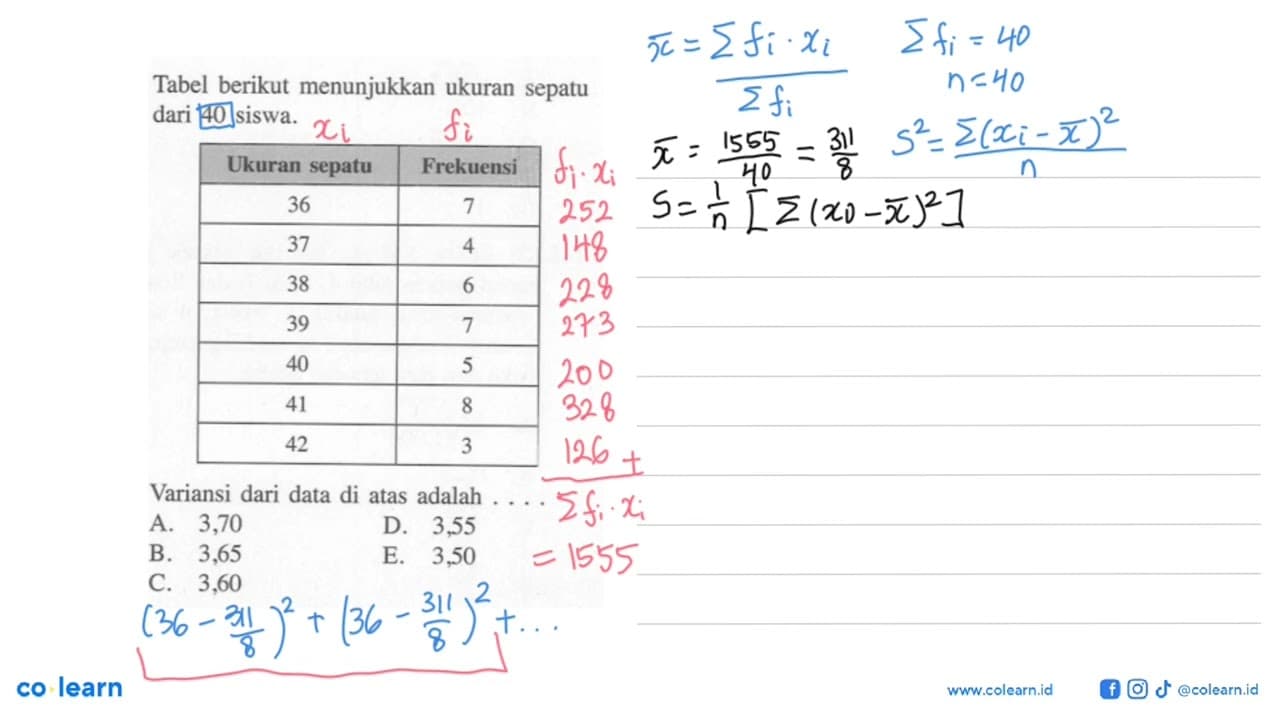 Tabel berikut menunjukkan ukuran sepatu
dari 40 siswa.
xi fi
Ukuran sepatu Frekuensi fi · xi
36 7 252
37 4 148
38 6 228
39 7 273
40 5 200
41 8 328
42 3 126 +
Variansi dari data di atas adalah . . . .
Σ fi · xi
= 1555
A. 3,70 D. 3,55
B. 3,65 E. 3,50
C. 3,60
(36 - 311/8)² + (36 - 311/8)² + ...
x̄ = Σ fi · xi / Σ fi
Σ fi = 40
n = 40
x̄ = 1555/40 = 311/8
S² = Σ(xi - x̄)² / n
S = 1/n [Σ (x0 - x̄)²]
co learn
www.colearn.id @colearn.id